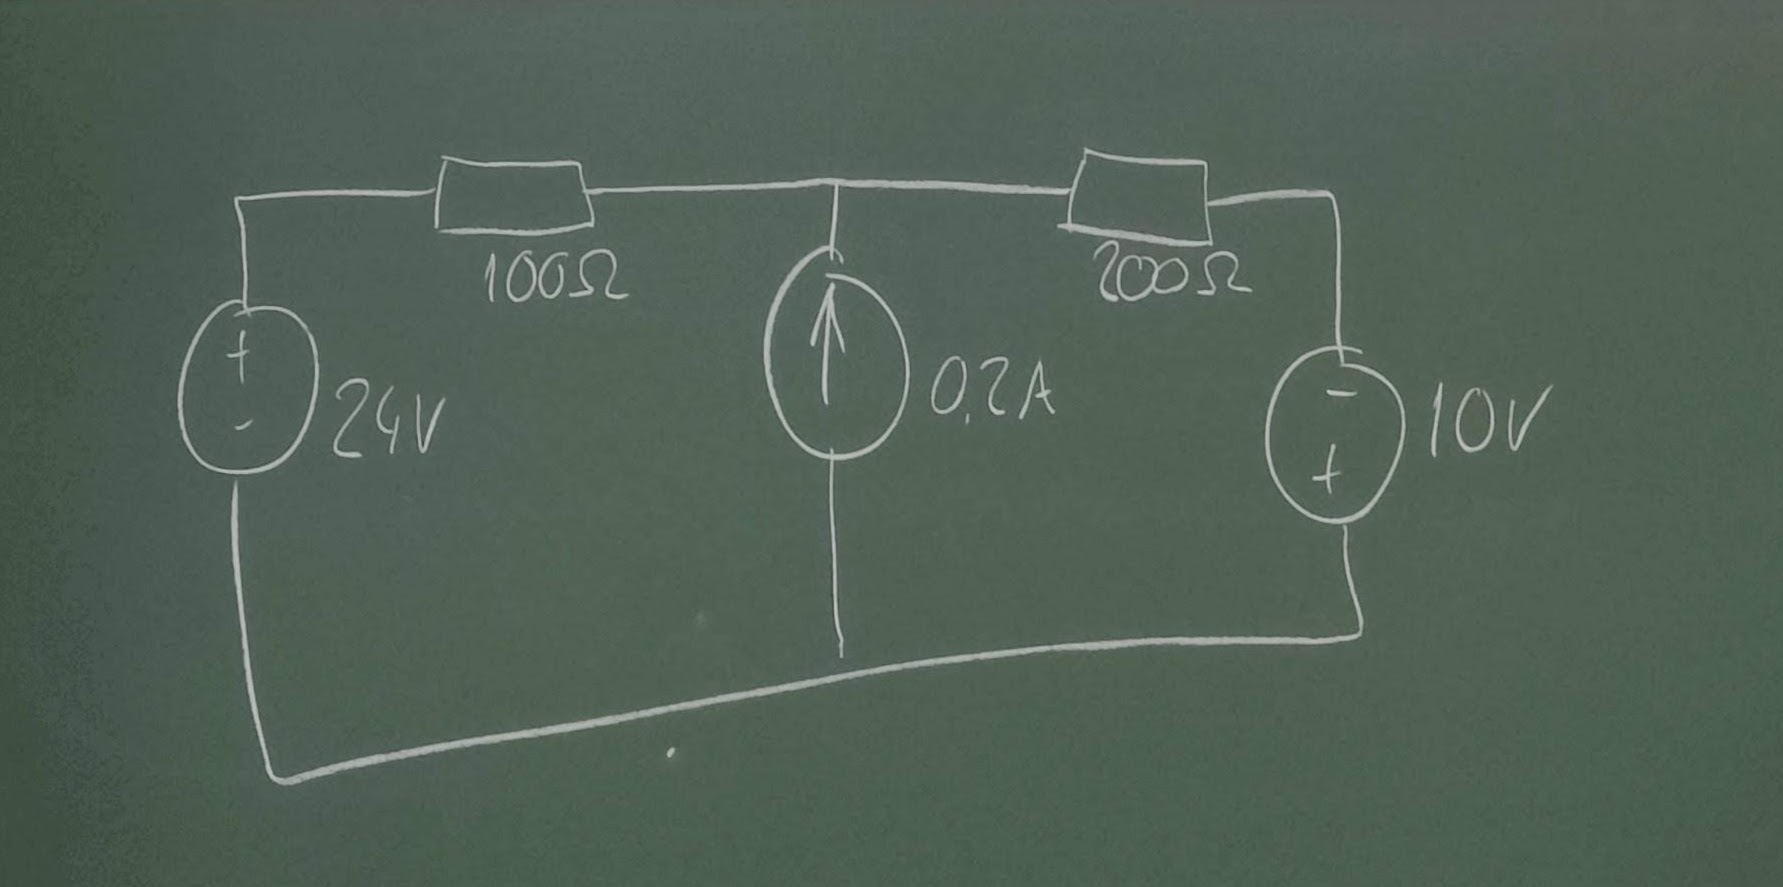 100Ω
200Ω
+
-
24V
0,2A
-
+
10V